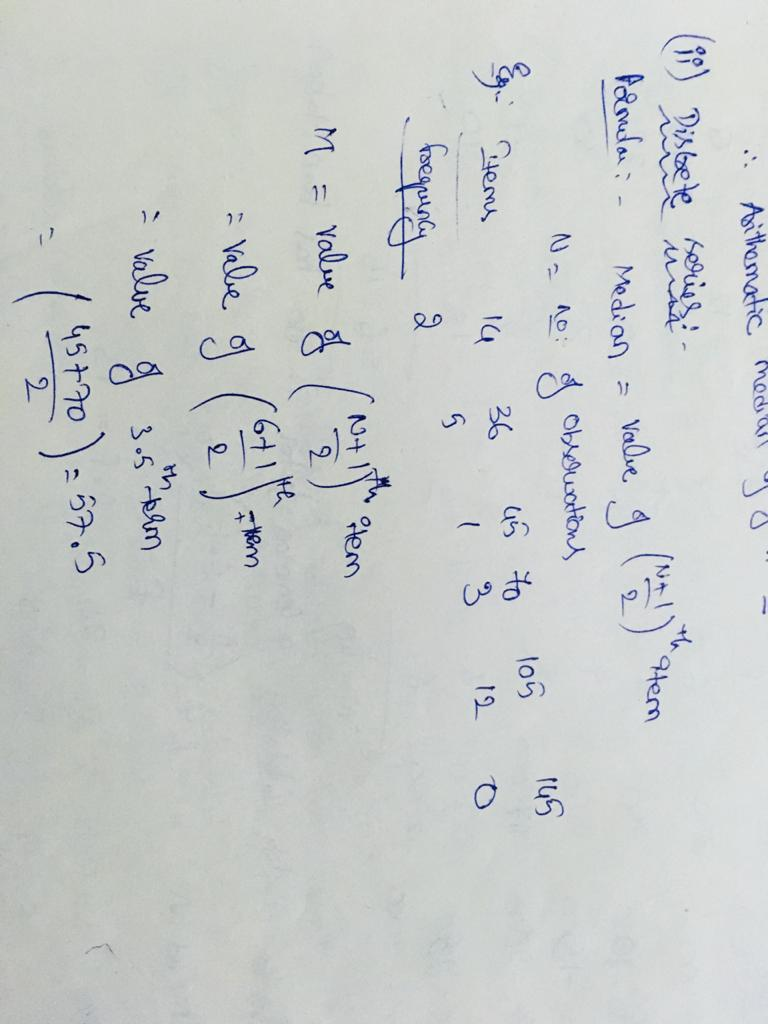 ∴ Arithamatic median of
(ii) Discrete series:-
Formula:- Median = value of (N+1/2)th item
N = no: of observations
Eg:- Items 14 36 45 70 105 145
frequency 2 5 1 3 12 0
M = value of (N+1/2)th item
= value of (6+1/2)th item
= value of 3.5th item
= (45+70/2) = 57.5